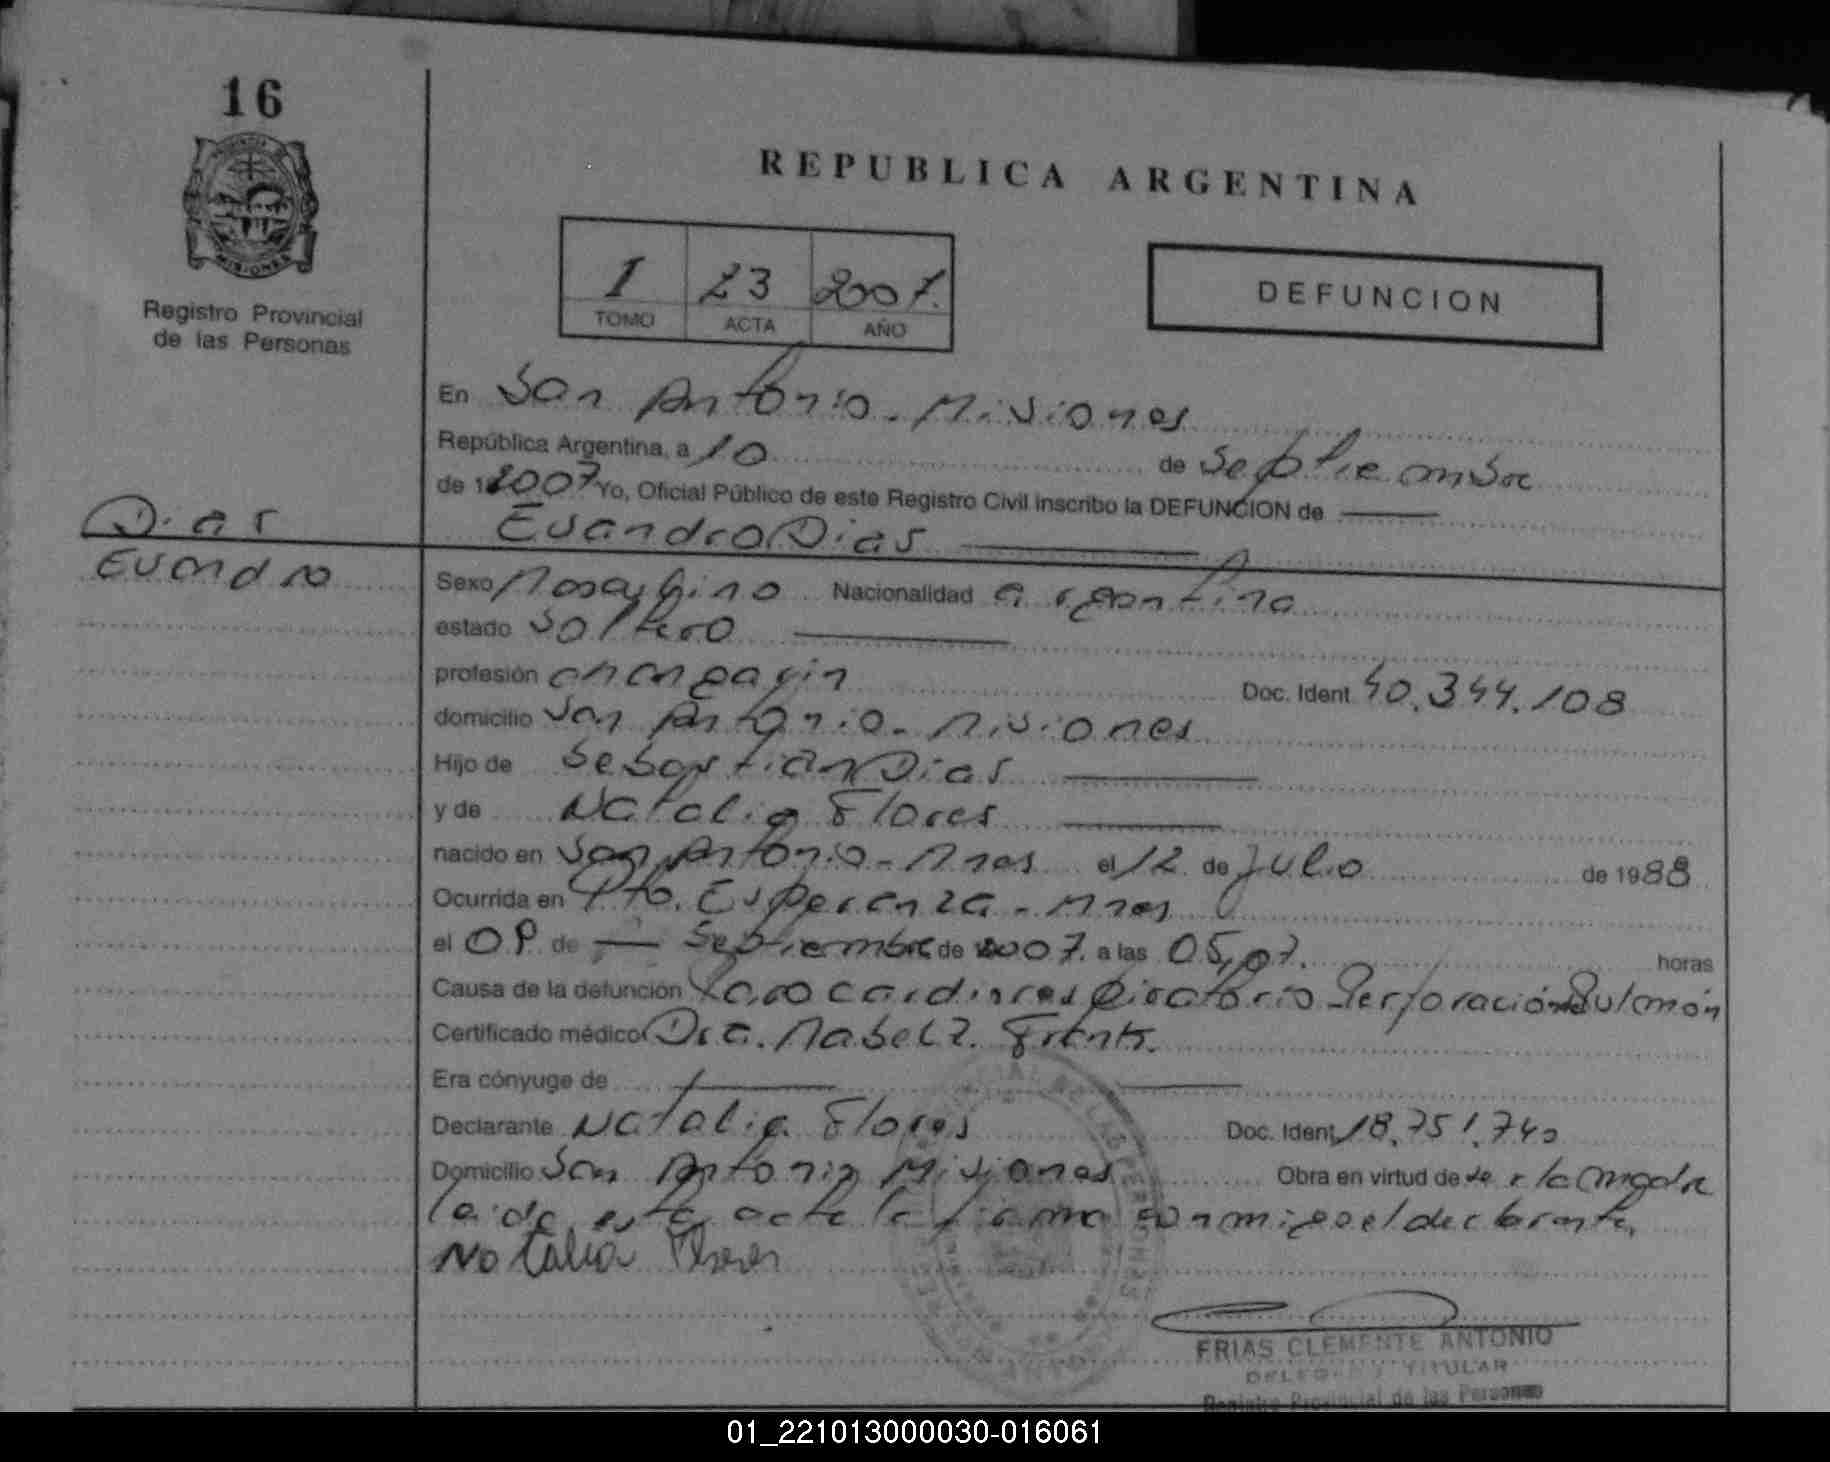 16
MISIONES
Registro Provincial
de las Personas
REPUBLICA ARGENTINA
I 23 2007.
TOMO ACTA AÑO
DEFUNCION
En San Antonio - Misiones
República Argentina, a 10 de Septiembre
de 2007 Yo, Oficial Público de este Registro Civil inscribo la DEFUNCION de
Dias
Evandro Dias
Evandro
Sexo Masculino Nacionalidad argentina
estado Soltero
profesión changarin Doc. Ident 40.344.108
domicilio San Antonio - Misiones
Hijo de Sebastian Dias
y de Natalia Flores
nacido en San Antonio - Mnes el 12 de Julio de 1988
Ocurrida en Pto. Esperanza - Mnes
el de Septiembre de 2007. a las 05,07. horas
Causa de la defunción Paro cardiorespiratorio Perforación Pulmón
Certificado médico Dra. Mabel Z.
Era cónyuge de
Declarante Natalia Flores Doc. Ident 18.751.740
Domicilio San Antonio Misiones Obra en virtud de ser la madre
leida esta acta la firma conmigo el declarante.
Natalia Flores
FRIAS CLEMENTE ANTONIO
DELEGADO TITULAR
Registro Provincial de las Personas
01_221013000030-016061